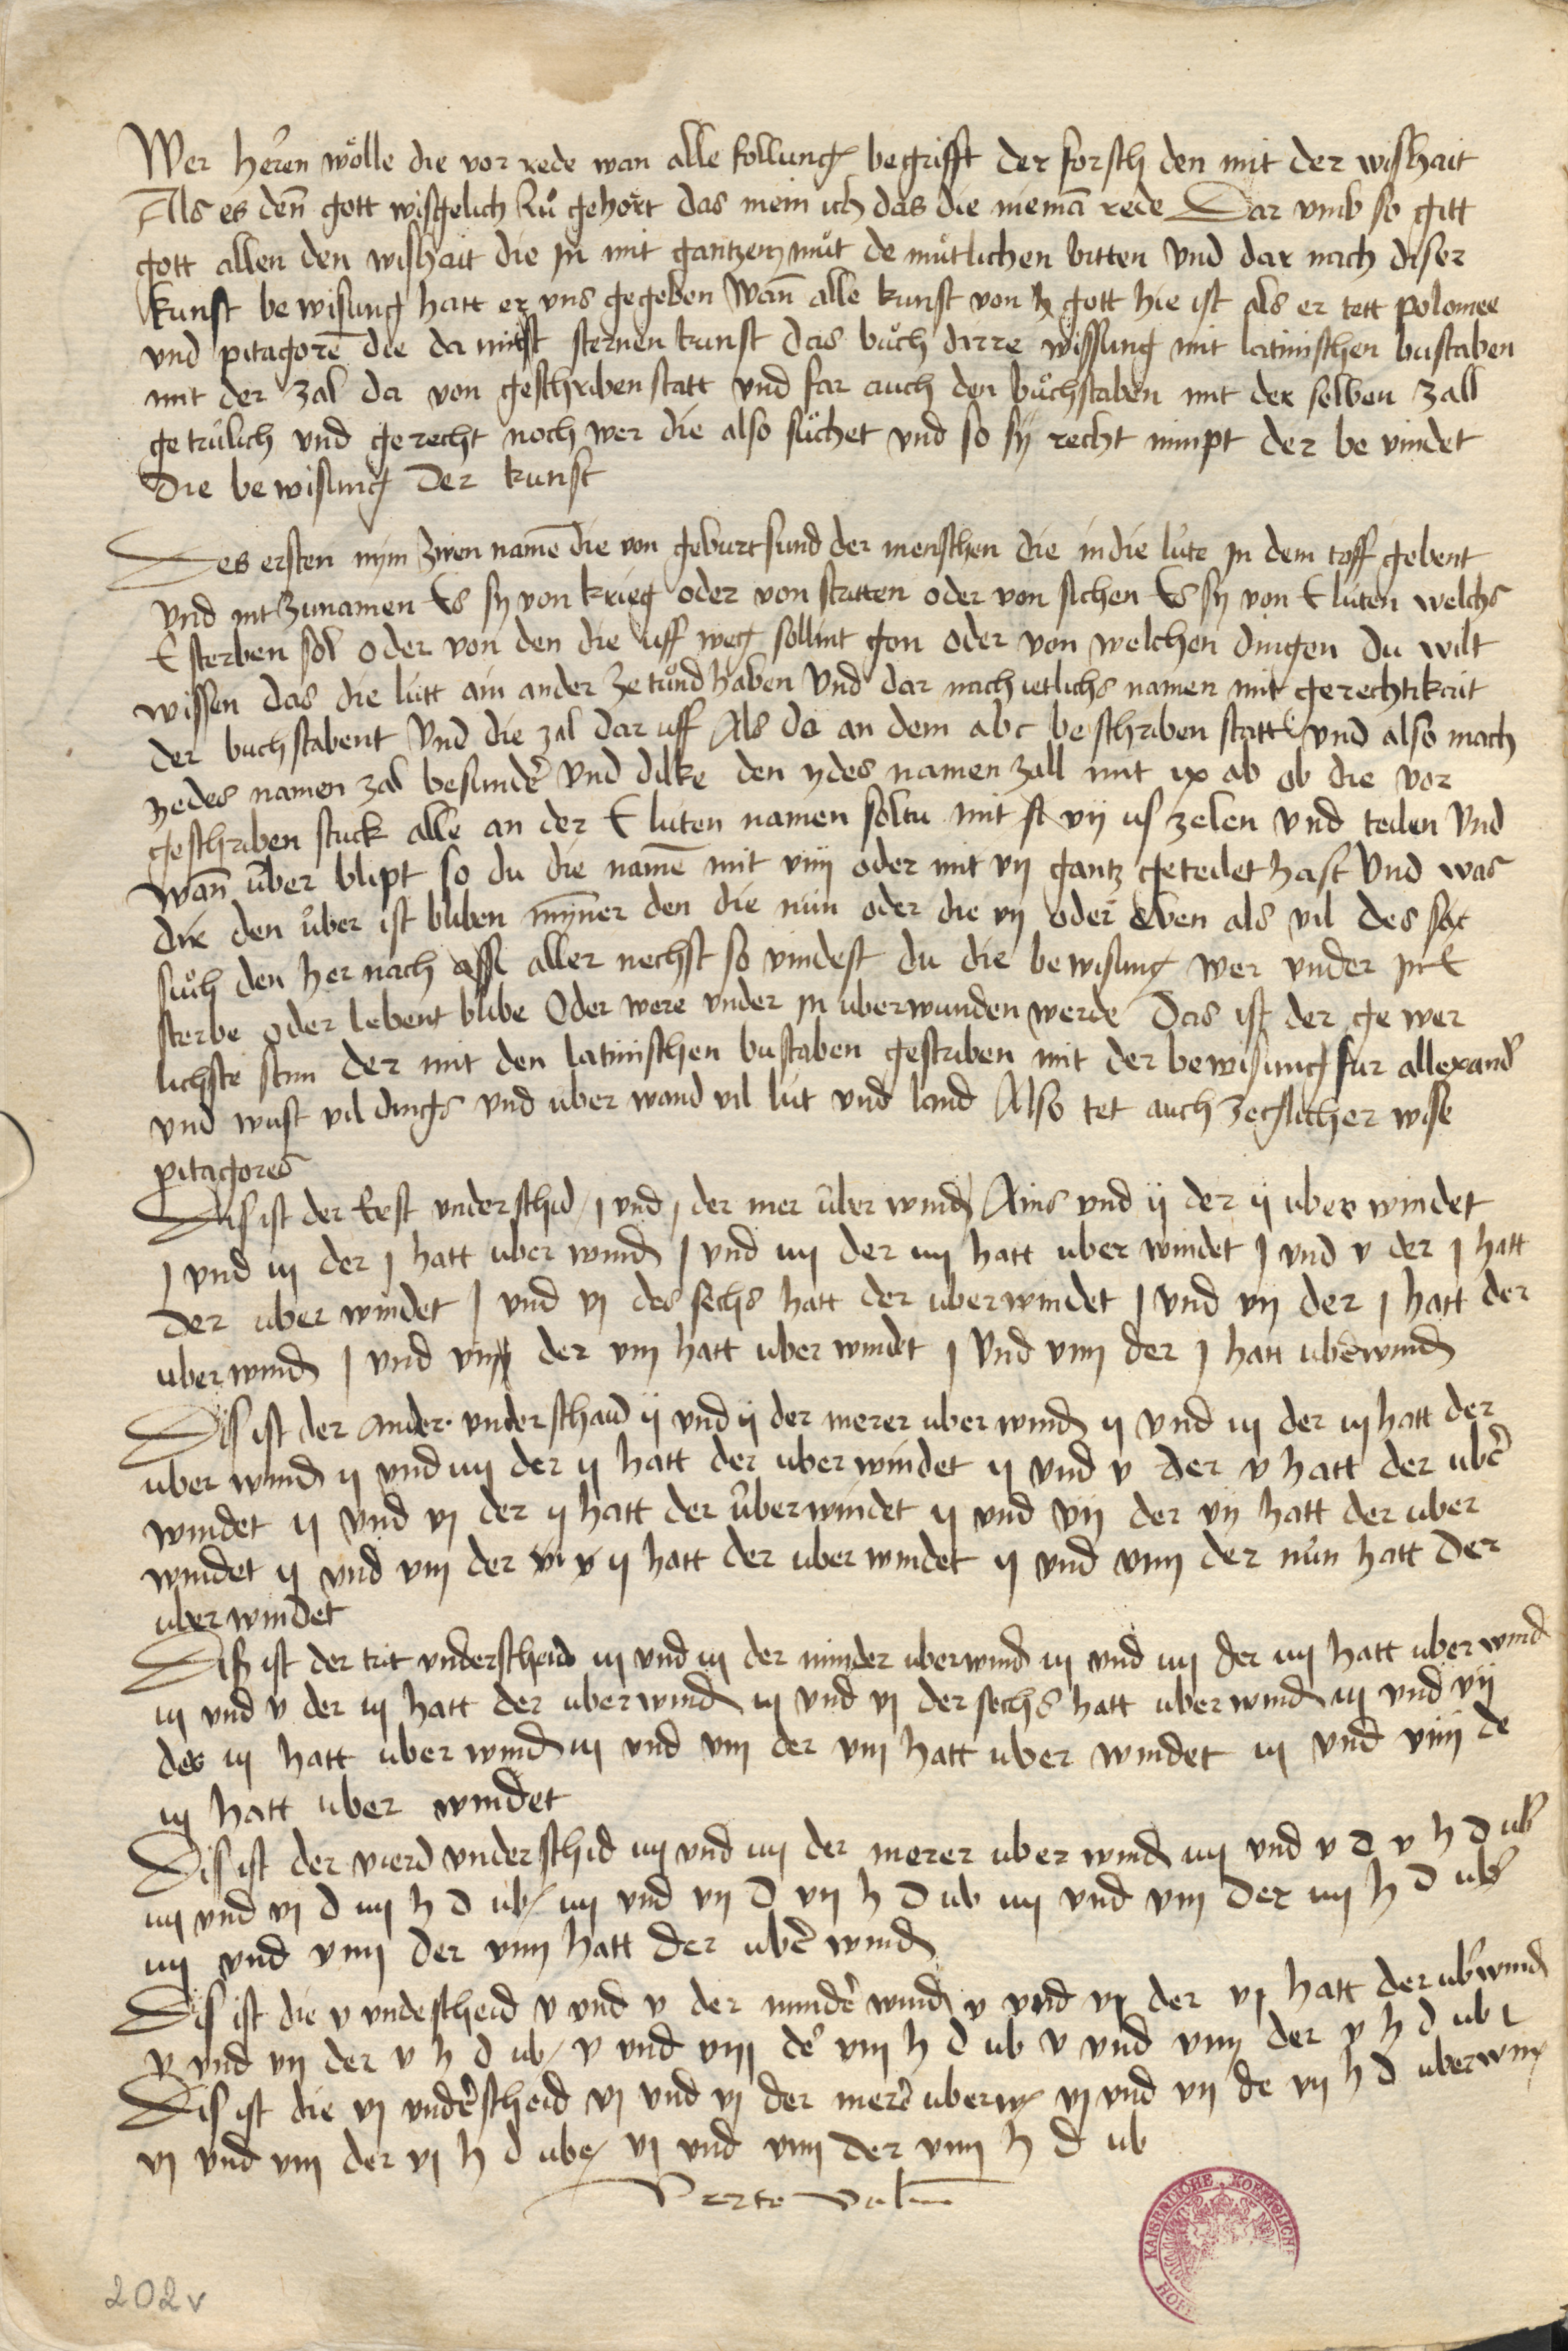 Wer heren wölle die vor rede wan alle follung begrifft der forsch den mit der wishait
Als es den̄ gott wisgelich zů gehört das mein ich das die niemā rede Dar vmb so gitt
gott allen den wishait die In mit gantzem můt de můtlichen bitten Vnd dar nach diser
kunst be wisung hatt er vns gegeben Wan̄ alle kunst von gott hie ist als er tett polomee
vnd pitagorē die da mit sternen kunst das bůch dirre wissung mit latinischen bůstaben
mit der zal da von geschriben statt vnd far auch den bůchstaben mit der selben zall
ge trůlich vnd ge recht noch wer die also sůchet vnd so sy recht nimpt der be vindet
Die be wisung Der kunst
Des ersten nym zwen namē die von geburt sund der menschen die in die lüte In dem toff gebent
vnd nit zunamen Es sy von krieg oder von stritten oder von sichen Es sy von E lüten welchs
E sterben sol oder von den die uff weg sollint gon oder von welchen dingen du wilt
wissen das die lütt ain ander ze tůnd haben Vnd dar nach ietlichs namen mit gerechtikait
der buchstabent Vnd die zal dar uff Als da an dem abc beschriben statt vnd also mach
yedes namen zal besunder Vnd dilke den ydes namen zall mit ix ab ob die vor
geschriben stuck alle an der E lüten namen soltu mit vij us zelen vnd teilen Vnd
Wan̄ über blipt so du die namē mit viiij oder mit vij gantz geteilet hast Vnd was
dir den über ist bliben mynner den die nün oder die vij oder eben als vil des
sůch den her nach aller nechst so vindest du die be wisung wer vnder In E
sterbe oder lebent blibe Oder were vnder In uberwunden werde Das ist der ge wer
lichste der mit den latinischen bustaben gestriben mit der bewisung fur allexander
vnd wust vil dings vnd über wand vil lüt vnd land Also tet auch wise
pitagores
Dis ist der Erst vnderschid j vnd j der mer über wind Ains vnd ij der ij uber windet
j vnd iij der j hatt uber wind j vnd iiij der iiij hatt uber windet j vnd v der j hatt
der uber windet j vnd vj des sechs hatt der uberwindet j vnd vij der j hatt der
uber wind j vnd viij der viij hatt uber windet j Vnd viiij der j hatt uberwind
Dis ist der ander vnderschaid ij vnd ij der merer uber wind ij vnd iij der iij hatt der
uber wind ij vnd iiij der ij hatt der uber windet ij vnd v der v hatt der uber
windet ij vnd vj der ij hatt der überwindet ij vnd vij der vij hatt der uber
windet ij vnd viij der ij hatt der uber windet ij vnd viiij der nün hatt Der
uber windet
Dis ist der trit vnderscheid iij vnd iij der minder uberwind iij vnd iiij der iiij hatt uber wind
iij vnd v der iij hatt der uberwind iij vnd vj der sechs hatt uber wind iij vnd vij
der iij hatt uber wind iij vnd viij der viij hatt uber windet iij vnd viiij de
iij hatt uber windet
Dis ist der vierd vnderschid iiij vnd iiij der merer uber wind iiij vnd v d v h d ub
iiij vnd vj d iiij h d ub iiij vnd vij d vij h d ub iiij vnd viij der iiij h d ub
iiij vnd viiij der viiij hatt der uber wind
Dis ist die v vndescheid v vnd v der minder wind v vnd vj der vj hatt der ubwind
v vnd vij der v h d ub v vnd viij der viij h d ub v vnd viiij der v h d ub
Dis ist die vj underscheid vj vnd vj der merer uberw vj vnd vij de vij h d uberwin
vj vnd viij der vj h d ube vj vnd viiij der viiij h d ub
Verte
202v
KAISERLICHE KOENIGLICHE
HOF